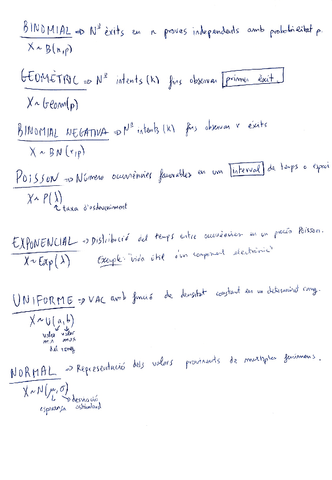 BINOMIAL → Nº èxits en n proves independents amb probabilitat p.
X ~ B(n,p)
GEOMÈTRIC → Nº intents (k) fins observar primer èxit.
X ~ Geom(p)
BINOMIAL NEGATIVA → Nº intents (k) fins observar r èxits
X ~ BN(r,p)
POISSON → Número ocurrències favorables en un interval de temps o espai
X ~ P(λ)
taxa d'esdeveniment
EXPONENCIAL → Distribució del temps entre ocurrències en un procés Poisson.
X ~ Exp(λ) Exemple: "vida útil d'un component electrònic"
UNIFORME → VAC amb funció de densitat constant en un determinat rang.
X ~ U(a,b)
valor valor
min max
del rang
NORMAL → Representació dels valors provinents de múltiples fenòmens.
X ~ N(μ,σ)
desviació
esperança estàndard